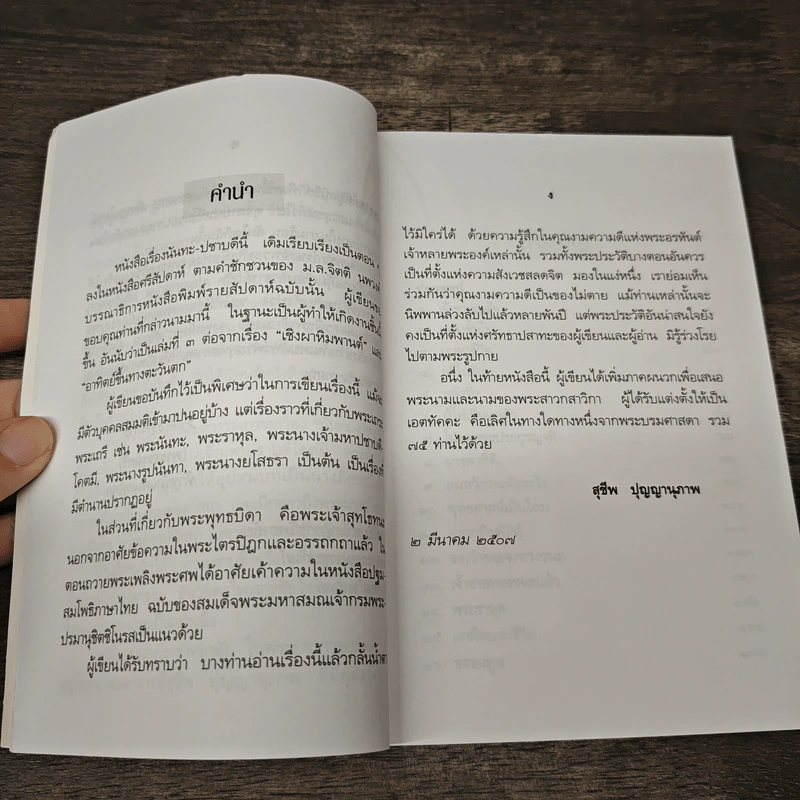 คำนำ
หนังสือเรื่องนันทะ-ปชาบดีนี้ เดิมเรียบเรียงเป็นตอน ๆ
ลงในหนังสือศรีสัปดาห์ ตามคำชักชวนของ ม.ล.จิตติ นพวงศ์
บรรณาธิการหนังสือพิมพ์รายสัปดาห์ฉบับนั้น ผู้เขียนขอ
ขอบคุณท่านที่กล่าวนามมานี้ ในฐานะเป็นผู้ทำให้เกิดงานชิ้นนี้
ขึ้น อันนับว่าเป็นเล่มที่ ๓ ต่อจากเรื่อง “เชิงผาหิมพานต์” และ
“อาทิตย์ขึ้นทางตะวันตก”
ผู้เขียนขอบันทึกไว้เป็นพิเศษว่าในการเขียนเรื่องนี้ แม้จะ
มีตัวบุคคลสมมติเข้ามาปนอยู่บ้าง แต่เรื่องราวที่เกี่ยวกับพระเถระ
พระเถรี เช่น พระนันทะ, พระราหุล, พระนางเจ้ามหาปชาบดี
โคตมี, พระนางรูปนันทา, พระนางยโสธรา เป็นต้น เป็นเรื่องที่
มีตำนานปรากฏอยู่
ในส่วนที่เกี่ยวกับพระพุทธบิดา คือพระเจ้าสุทโธทนะ
นอกจากอาศัยข้อความในพระไตรปิฎกและอรรถกถาแล้ว ใน
ตอนถวายพระเพลิงพระศพได้อาศัยเค้าความในหนังสือปฐม-
สมโพธิภาษาไทย ฉบับของสมเด็จพระมหาสมณเจ้ากรมพระ
ปรมานุชิตชิโนรสเป็นแนวด้วย
ผู้เขียนได้รับทราบว่า บางท่านอ่านเรื่องนี้แล้วกลั้นน้ำตา
ง
ไว้มิใคร่ได้ ด้วยความรู้สึกในคุณงามความดีแห่งพระอรหันต์
เจ้าหลายพระองค์เหล่านั้น รวมทั้งพระประวัติบางตอนอันควร
เป็นที่ตั้งแห่งความสังเวชสลดจิต มองในแง่หนึ่ง เราย่อมเห็น
ร่วมกันว่าคุณงามความดีเป็นของไม่ตาย แม้ท่านเหล่านั้นจะ
นิพพานล่วงลับไปแล้วหลายพันปี แต่พระประวัติอันน่าสนใจยัง
คงเป็นที่ตั้งแห่งศรัทธาปสาทะของผู้เขียนและผู้อ่าน มิรู้ร่วงโรย
ไปตามพระรูปกาย
อนึ่ง ในท้ายหนังสือนี้ ผู้เขียนได้เพิ่มภาคผนวกเพื่อเสนอ
พระนามและนามของพระสาวกสาวิกา ผู้ได้รับแต่งตั้งให้เป็น
เอตทัคคะ คือเลิศในทางใดทางหนึ่งจากพระบรมศาสดา รวม
๗๕ ท่านไว้ด้วย
สุชีพ ปุญญานุภาพ
๒ มีนาคม ๒๕๐๗